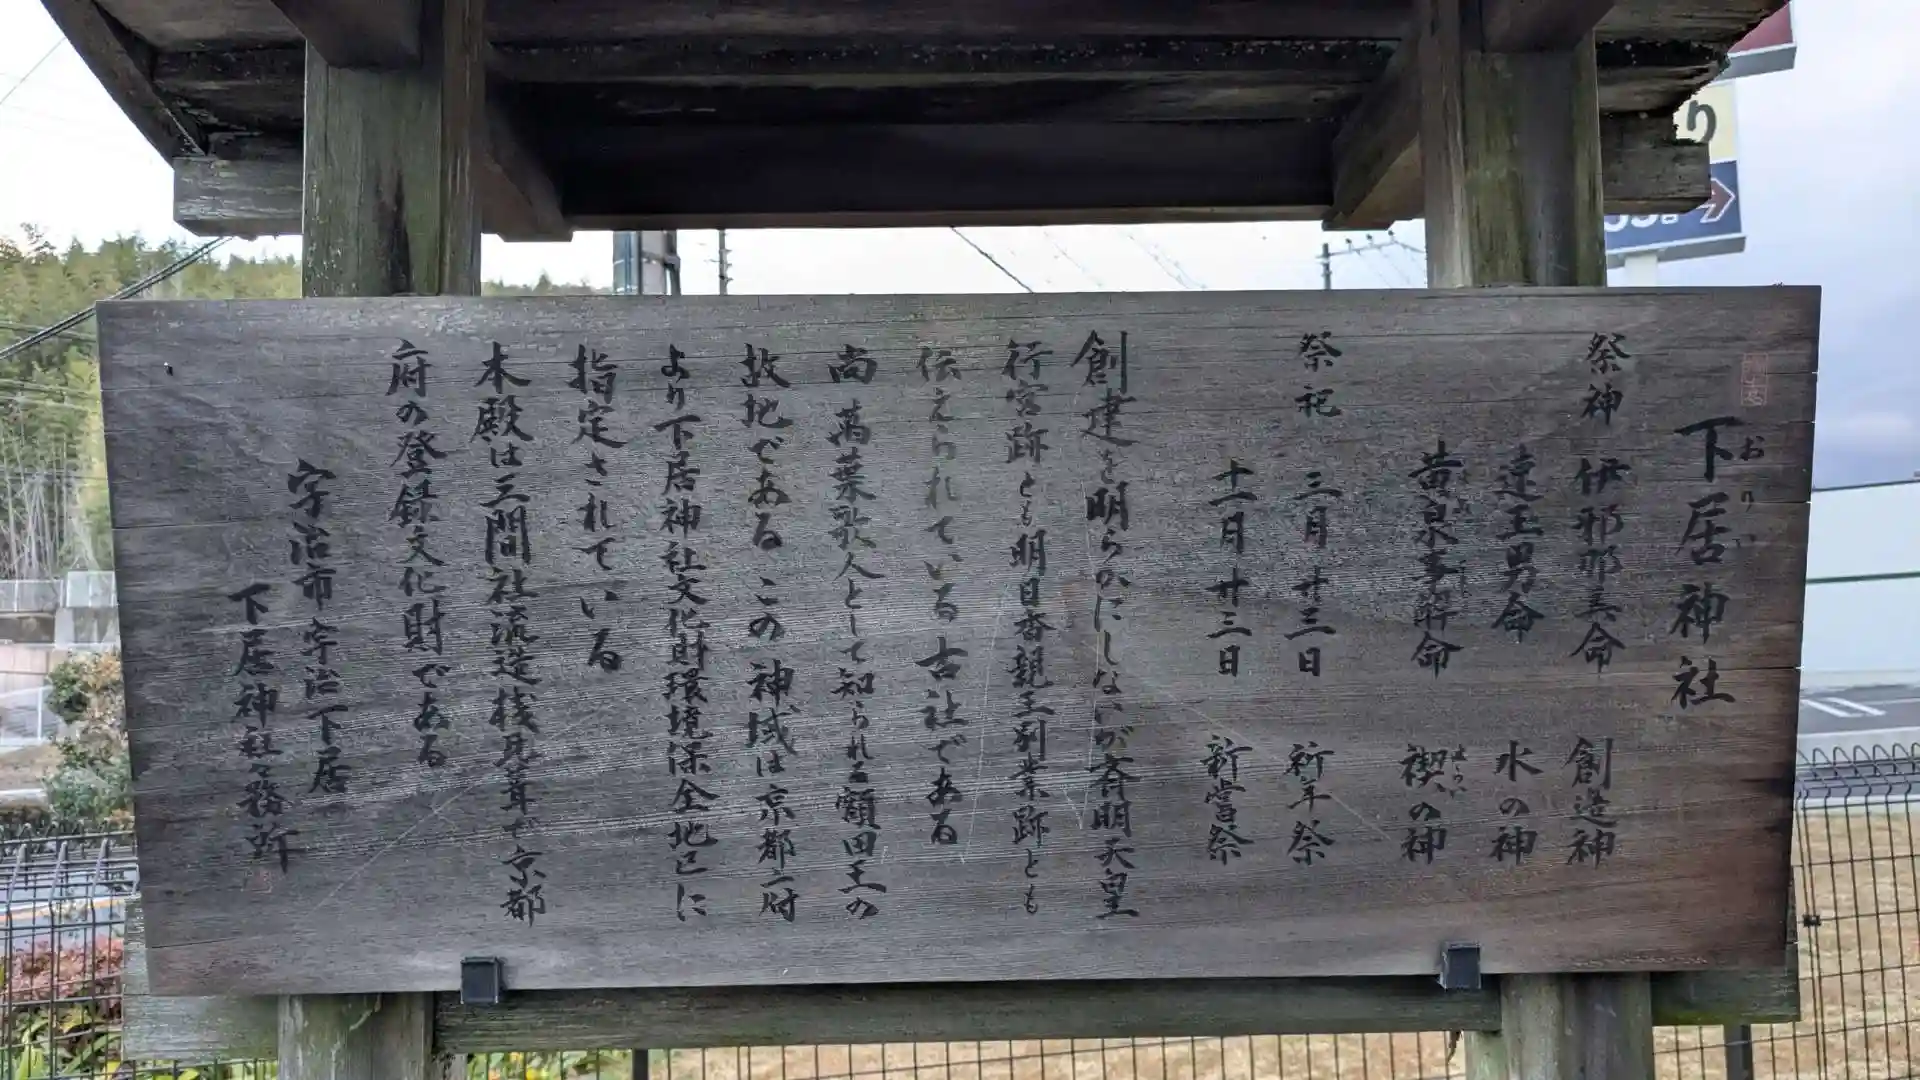 下居神社
おりい
祭神 伊邪那美命 創造神
速玉男命 水の神
黄泉事解命 禊の神
祭祀 三月廿三日 祈年祭
十一月廿三日 新嘗祭
創建を明らかにしないが斉明天皇
行宮跡とも明日香親王別業跡とも
伝えられている古社である
尚 萬葉歌人として知られる額田王の
故地である この神域は京都府
より下居神社文化財環境保全地区に
指定されている
本殿は三間社流造桟瓦葺で京都
府の登録文化財である
宇治市宇治下居
下居神社々務所
り